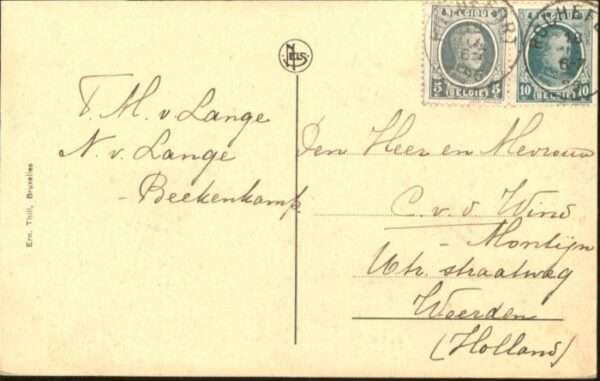 T. M. v Lange
N. v. Lange
- Beekenkamp.
Den Heer en Mevrouw
C. v. d. Wind
- Montijn
Utr. straatweg
Woerden
(Holland)
Ern. Thill, Bruxelles
NELS
BELGIQUE
5 5
BELGIË
BELGIQUE
10 10
BELGIË